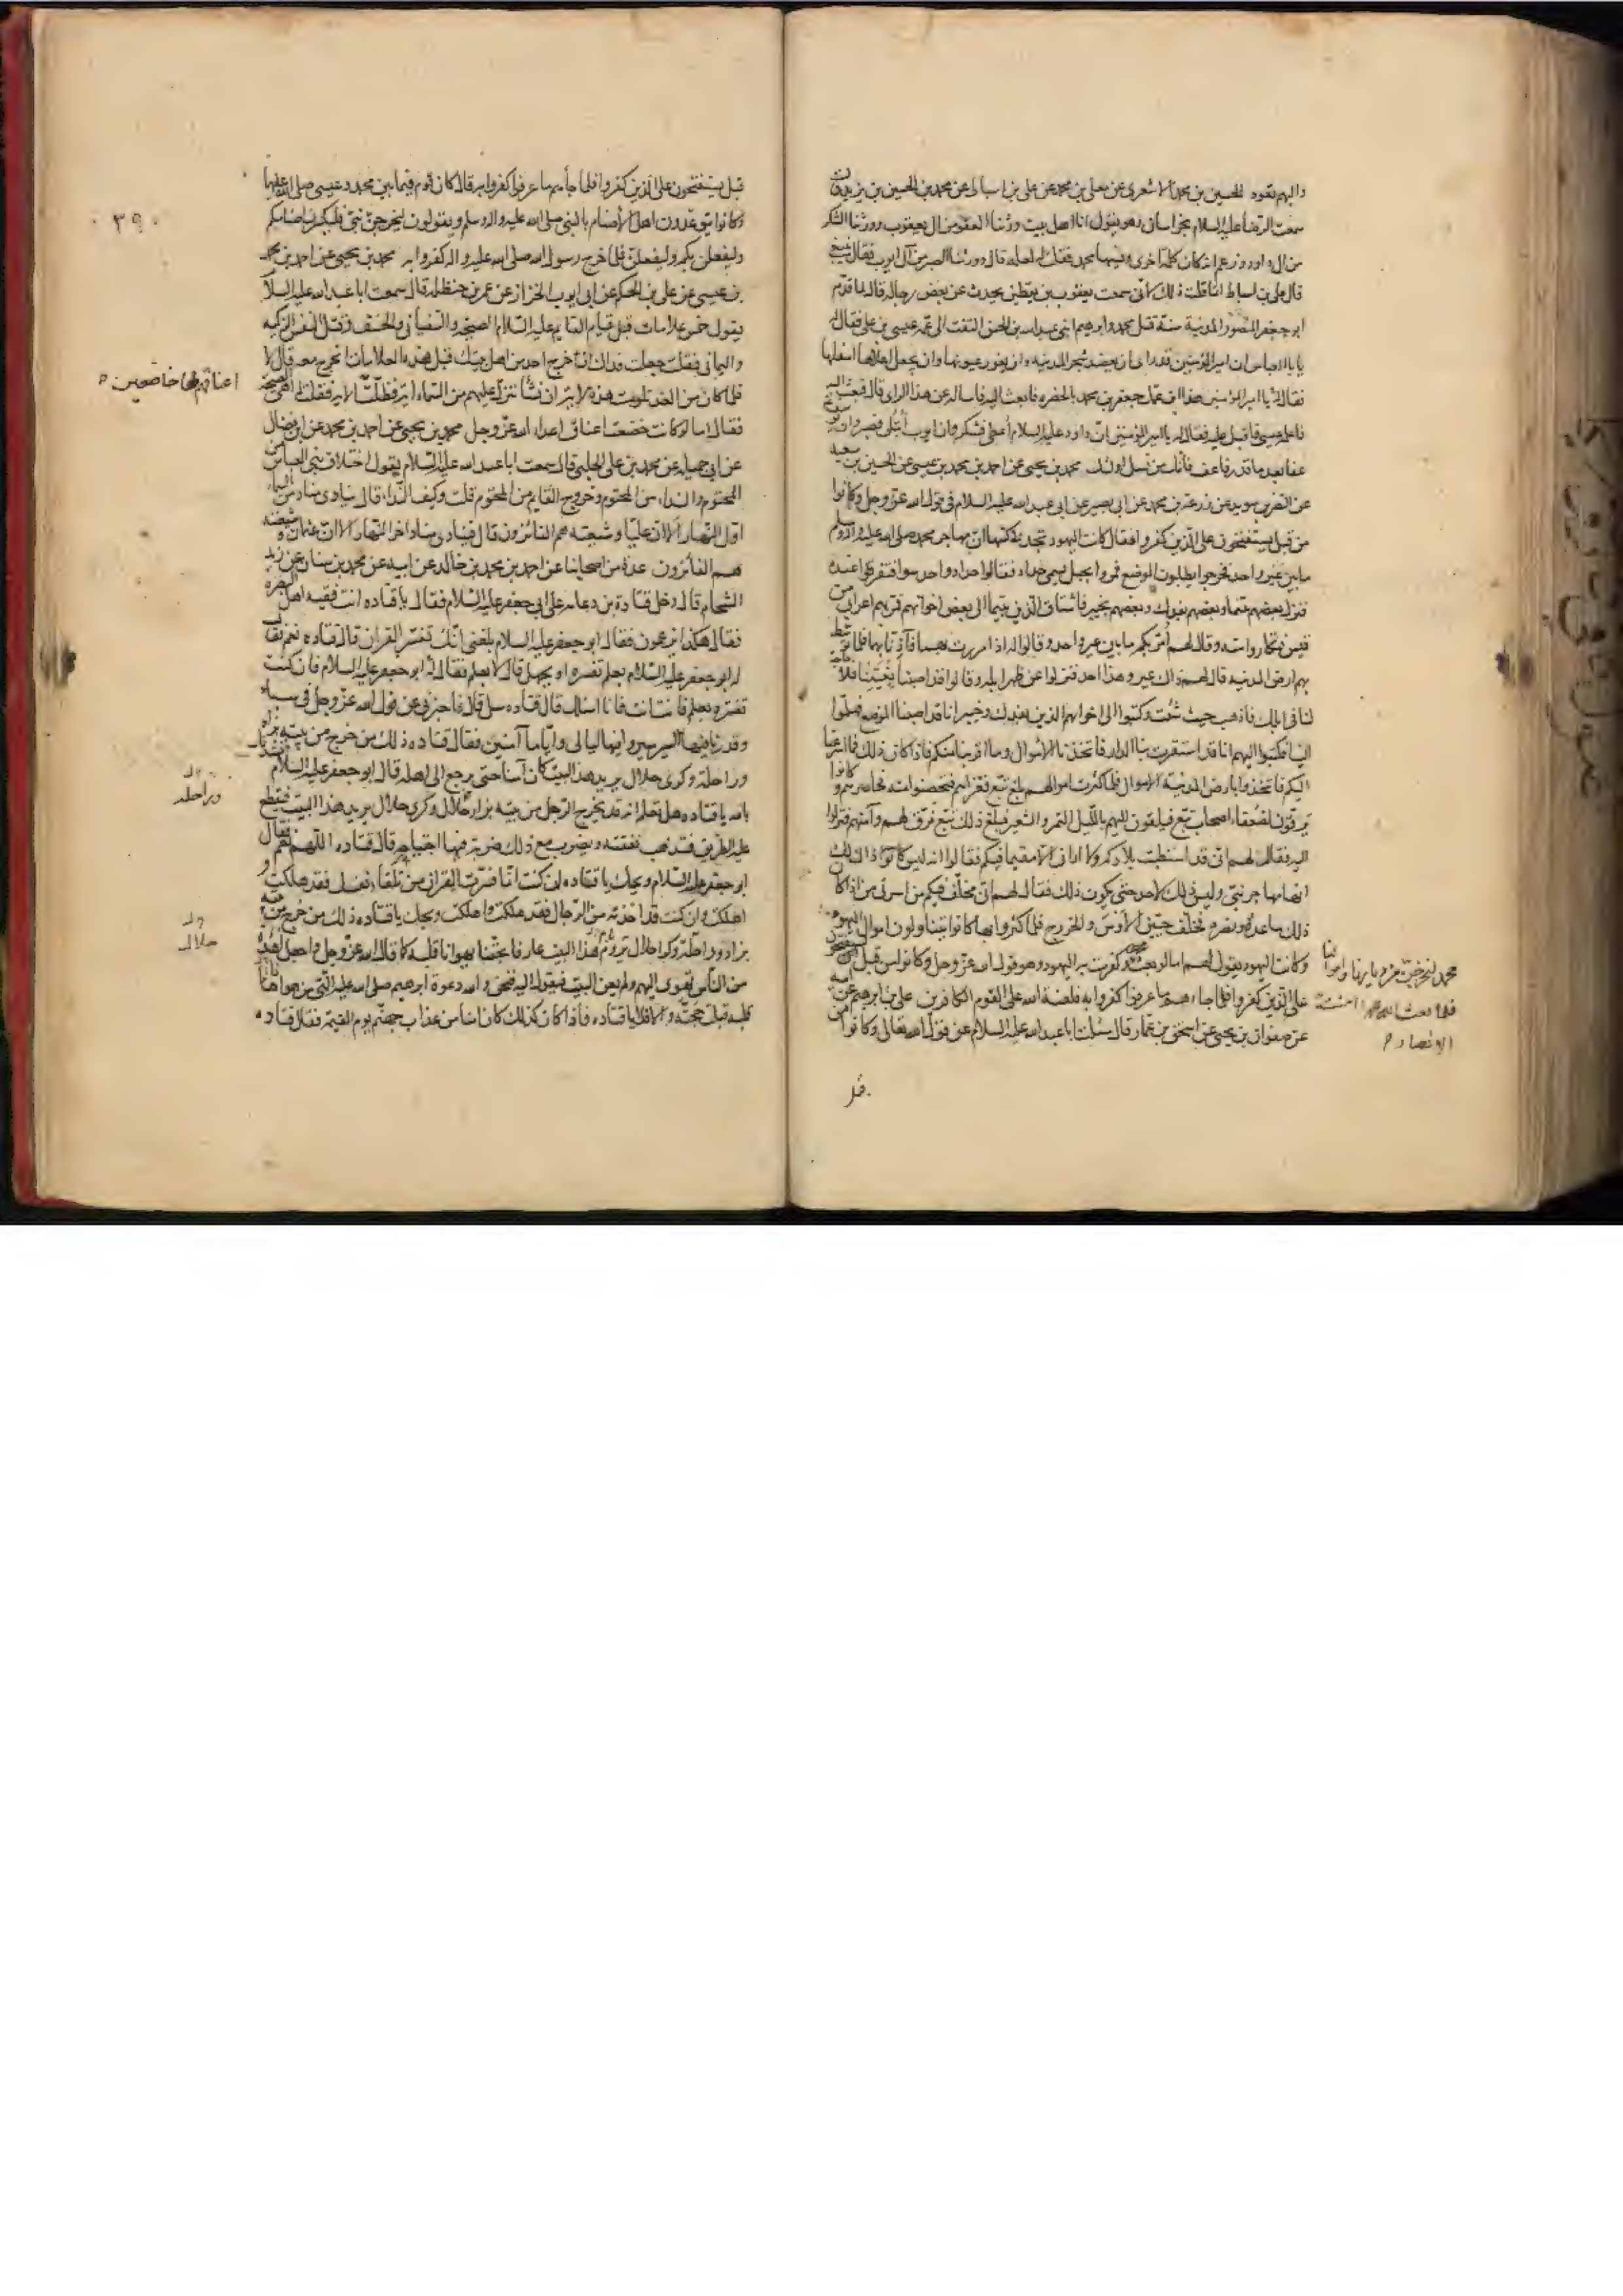 واليهم تعود الحسين بن محمد الاشعرى عن معلى بن محمد عن على بن اسباط عن محمد بن الحسين بن يزيد قال
سمعت الرضا عليه السلام بخراسان وهو يقول انا اهل بيت ورثنا العفو من ال يعقوب وورثنا الشكر
من ال داود وزعم انه كان كلمة اخرى ونسيها محمد فقلت له لعله قال وورثنا الصبر من آل ايوب فقال ينبغى
قال على بن اسباط انما قلت ذلك لانى سمعت يعقوب بن يقطين يحدث عن بعض رجاله قال لما قدم
ابو جعفر المنصور المدينة سنة قتل محمد وابرهيم ابنى عبد الله بن الحسن التفت الى عمه عيسى بن على فقال له
يا با العباس ان امير المؤمنين قد راى ان يعضد شجر المدينه وان يعور عيونها وان يجعل اعلاها اسفلها
فقال له يا امير المؤمنين هذا ابن عمك جعفر بن محمد بالحضره فابعث اليه فاساله عن هذا الراى قال فبعث اليه
فاعلمه عيسى فاقبل عليه فقال له يا امير المؤمنين ان داود عليه السلام اعطى فشكر وان ايوب ابتلى فصبر وان يوسف
عفا بعد ما قدر فاعف فانك من نسل اولئك محمد بن يحيى عن احمد بن محمد بن عيسى عن الحسين بن سعيد
عن النضر بن سويد عن زرعة بن محمد عن ابى بصير عن ابى عبد الله عليه السلام فى قول الله عز وجل وكانوا
من قبل يستفتحون على الذين كفروا فقال كانت اليهود تجد فى كتبها ان مهاجر محمد صلى الله عليه واله وسلم
ما بين عير واحد فخرجوا يطلبون الموضع فمروا بجبل يسمى حداد فقالوا حداد واحد سوا فتفرقوا عنده
فنزل بعضهم بتيما وبعضهم بفدك وبعضهم بخيبر فاشتاق الذين بتيما الى بعض اخوانهم فمر بهم اعرابى من
قيس فتكاروا منه وقال لهم امر بكم ما بين عير واحد وقالوا له اذا مررت بهما فآذنا بهما فلما توسط
بهم ارض المدينه قال لهم ذاك عير وهذا احد فنزلوا عن ظهر ابله وقالوا قد اصبنا بغيتنا فلا حاجة
لنا فى ابلك فاذهب حيث شئت وكتبوا الى اخوانهم الذين بفدك وخيبر انا قد اصبنا الموضع فهلموا
الينا فكتبوا اليهم انا قد استقرت بنا الدار فاتخذنا الاموال وما اقربنا منكم فاذا كان ذلك فما اسرعنا
اليكم فاتخذوا بارض المدينة الاموال فلما كثرت اموالهم بلغ تبع فغزاهم فتحصنوا منه فحاصرهم وكانوا
يرقون لضعفاء اصحاب تبع فيلقون اليهم بالليل التمر والشعير فبلغ ذلك تبع فرق لهم وآمنهم فنزلوا
اليه فقال لهم انى قد استطبت بلادكم ولا ارانى الا مقيما فيكم فقالوا انه ليس ذاك لك
انها مهاجر نبى وليس ذلك لاحد حتى يكون ذلك فقال لهم انى مخلف فيكم من اسرتى من اذا كان
ذلك ساعده ونصره فخلف حيين الاوس والخزرج فلما كثروا بها كانوا يتناولون اموال اليهود
وكانت اليهود يقول لهم اما لو بعث محمد وكفرت به اليهود وهو قول الله عز وجل وكانوا من قبل يستفتحون
على الذين كفروا فلما جاءهم ما عرفوا كفروا به فلعنة الله على القوم الكافرين على بن ابرهيم عن ابيه
عن صفوان بن يحيى عن اسحق بن عمار قال سئلت ابا عبد الله عليه السلام عن قول الله تعالى وكانوا من
محمد ليخرجنكم من ديارنا واموالنا
فلما بعث الله محمدا امنت به
الانصار
قبل
٣٩٠
قبل يستفتحون على الذين كفروا فلما جاءهم ما عرفوا كفروا به قال كان قوم فيما بين محمد وعيسى صلى الله عليهما
وكانوا يتوعدون اهل الاصنام بالنبى صلى الله عليه واله وسلم ويقولون ليخرجن نبى فليكسرن اصنامكم
وليفعلن بكم وليفعلن فلما خرج رسول الله صلى الله عليه واله كفروا به محمد بن يحيى عن احمد بن محمد
بن عيسى عن على بن الحكم عن ابى ايوب الخزاز عن عمر بن حنظله قال سمعت ابا عبد الله عليه السلام
يقول خمس علامات قبل قيام القايم عليه السلام الصيحه والسفيانى والخسف وقتل النفس الزكيه
واليمانى فقلت جعلت فداك ان خرج احد من اهل بيتك قبل هذه العلامات انخرج معه قال لا
فلما كان من الغد تلوت هذه الاية ان نشأ ننزل عليهم من السماء اية فظلت الاية فقلت له اهى الصيحة
اعناقهم لها خاضعين
فقال اما لو كانت خضعت اعناق اعداء الله عز وجل محمد بن يحيى عن احمد بن محمد عن ابن فضال
عن ابى جميله عن محمد بن على الحلبى قال سمعت ابا عبد الله عليه السلام يقول اختلاف بنى العباس من
المحتوم والنداء من المحتوم وخروج القايم من المحتوم قلت وكيف النداء قال ينادى مناد من السماء
اول النهار الا ان عليا وشيعته هم الفائزون قال وينادى مناد اخر النهار الا ان عثمان وشيعته
هم الفائزون عدة من اصحابنا عن احمد بن محمد بن خالد عن ابيه عن محمد بن سنان عن زيد
الشحام قال دخل قتادة بن دعامه على ابى جعفر عليه السلام فقال يا قتاده انت فقيه اهل البصره
فقال هكذا يزعمون فقال ابو جعفر عليه السلام بلغنى انك تفسر القران قال قتاده نعم فقال
له ابو جعفر عليه السلام بعلم تفسره او بجهل قال لا بعلم فقال له ابو جعفر عليه السلام فان كنت
تفسره بعلم فانت انت فانا اسئلك قال قتاده سل قال فاخبرنى عن قول الله عز وجل فى سبا
وقدرنا فيها السير سيروا فيها ليالى واياما آمنين فقال قتاده ذلك من خرج من بيته بزاد
وراحلة وكرى حلال يريد هذا البيت كان آمنا حتى يرجع الى اهله قال ابو جعفر عليه السلام
وراحله
بالله يا قتاده هل تعلم انه قد يخرج الرجل من بيته بزاد حلال وكرى حلال يريد هذا البيت فيقطع
عليه الطريق فتذهب نفقته ويضرب مع ذلك ضربة فيها اجتياحه قال قتاده اللهم نعم فقال
ابو جعفر عليه السلام ويحك يا قتاده ان كنت انما فسرت القران من تلقاء نفسك فقد هلكت و
اهلكت وان كنت قد اخذته من الرجال فقد هلكت واهلكت ويحك يا قتاده ذلك من خرج من بيته
حلال
بزاد وراحلة وكرا حلال يروم هذا البيت عارفا بحقنا يهوانا قلبه كما قال الله عز وجل واجعل افئدة
من الناس تهوى اليهم ولم يعن البيت فيقول اليه فنحن والله دعوة ابرهيم صلى الله عليه التى من هوانا
قلبه قبلت حجته والا فلا يا قتاده فاذا كان كذلك كان امنا من عذاب جهنم يوم القيمة فقال قتاده